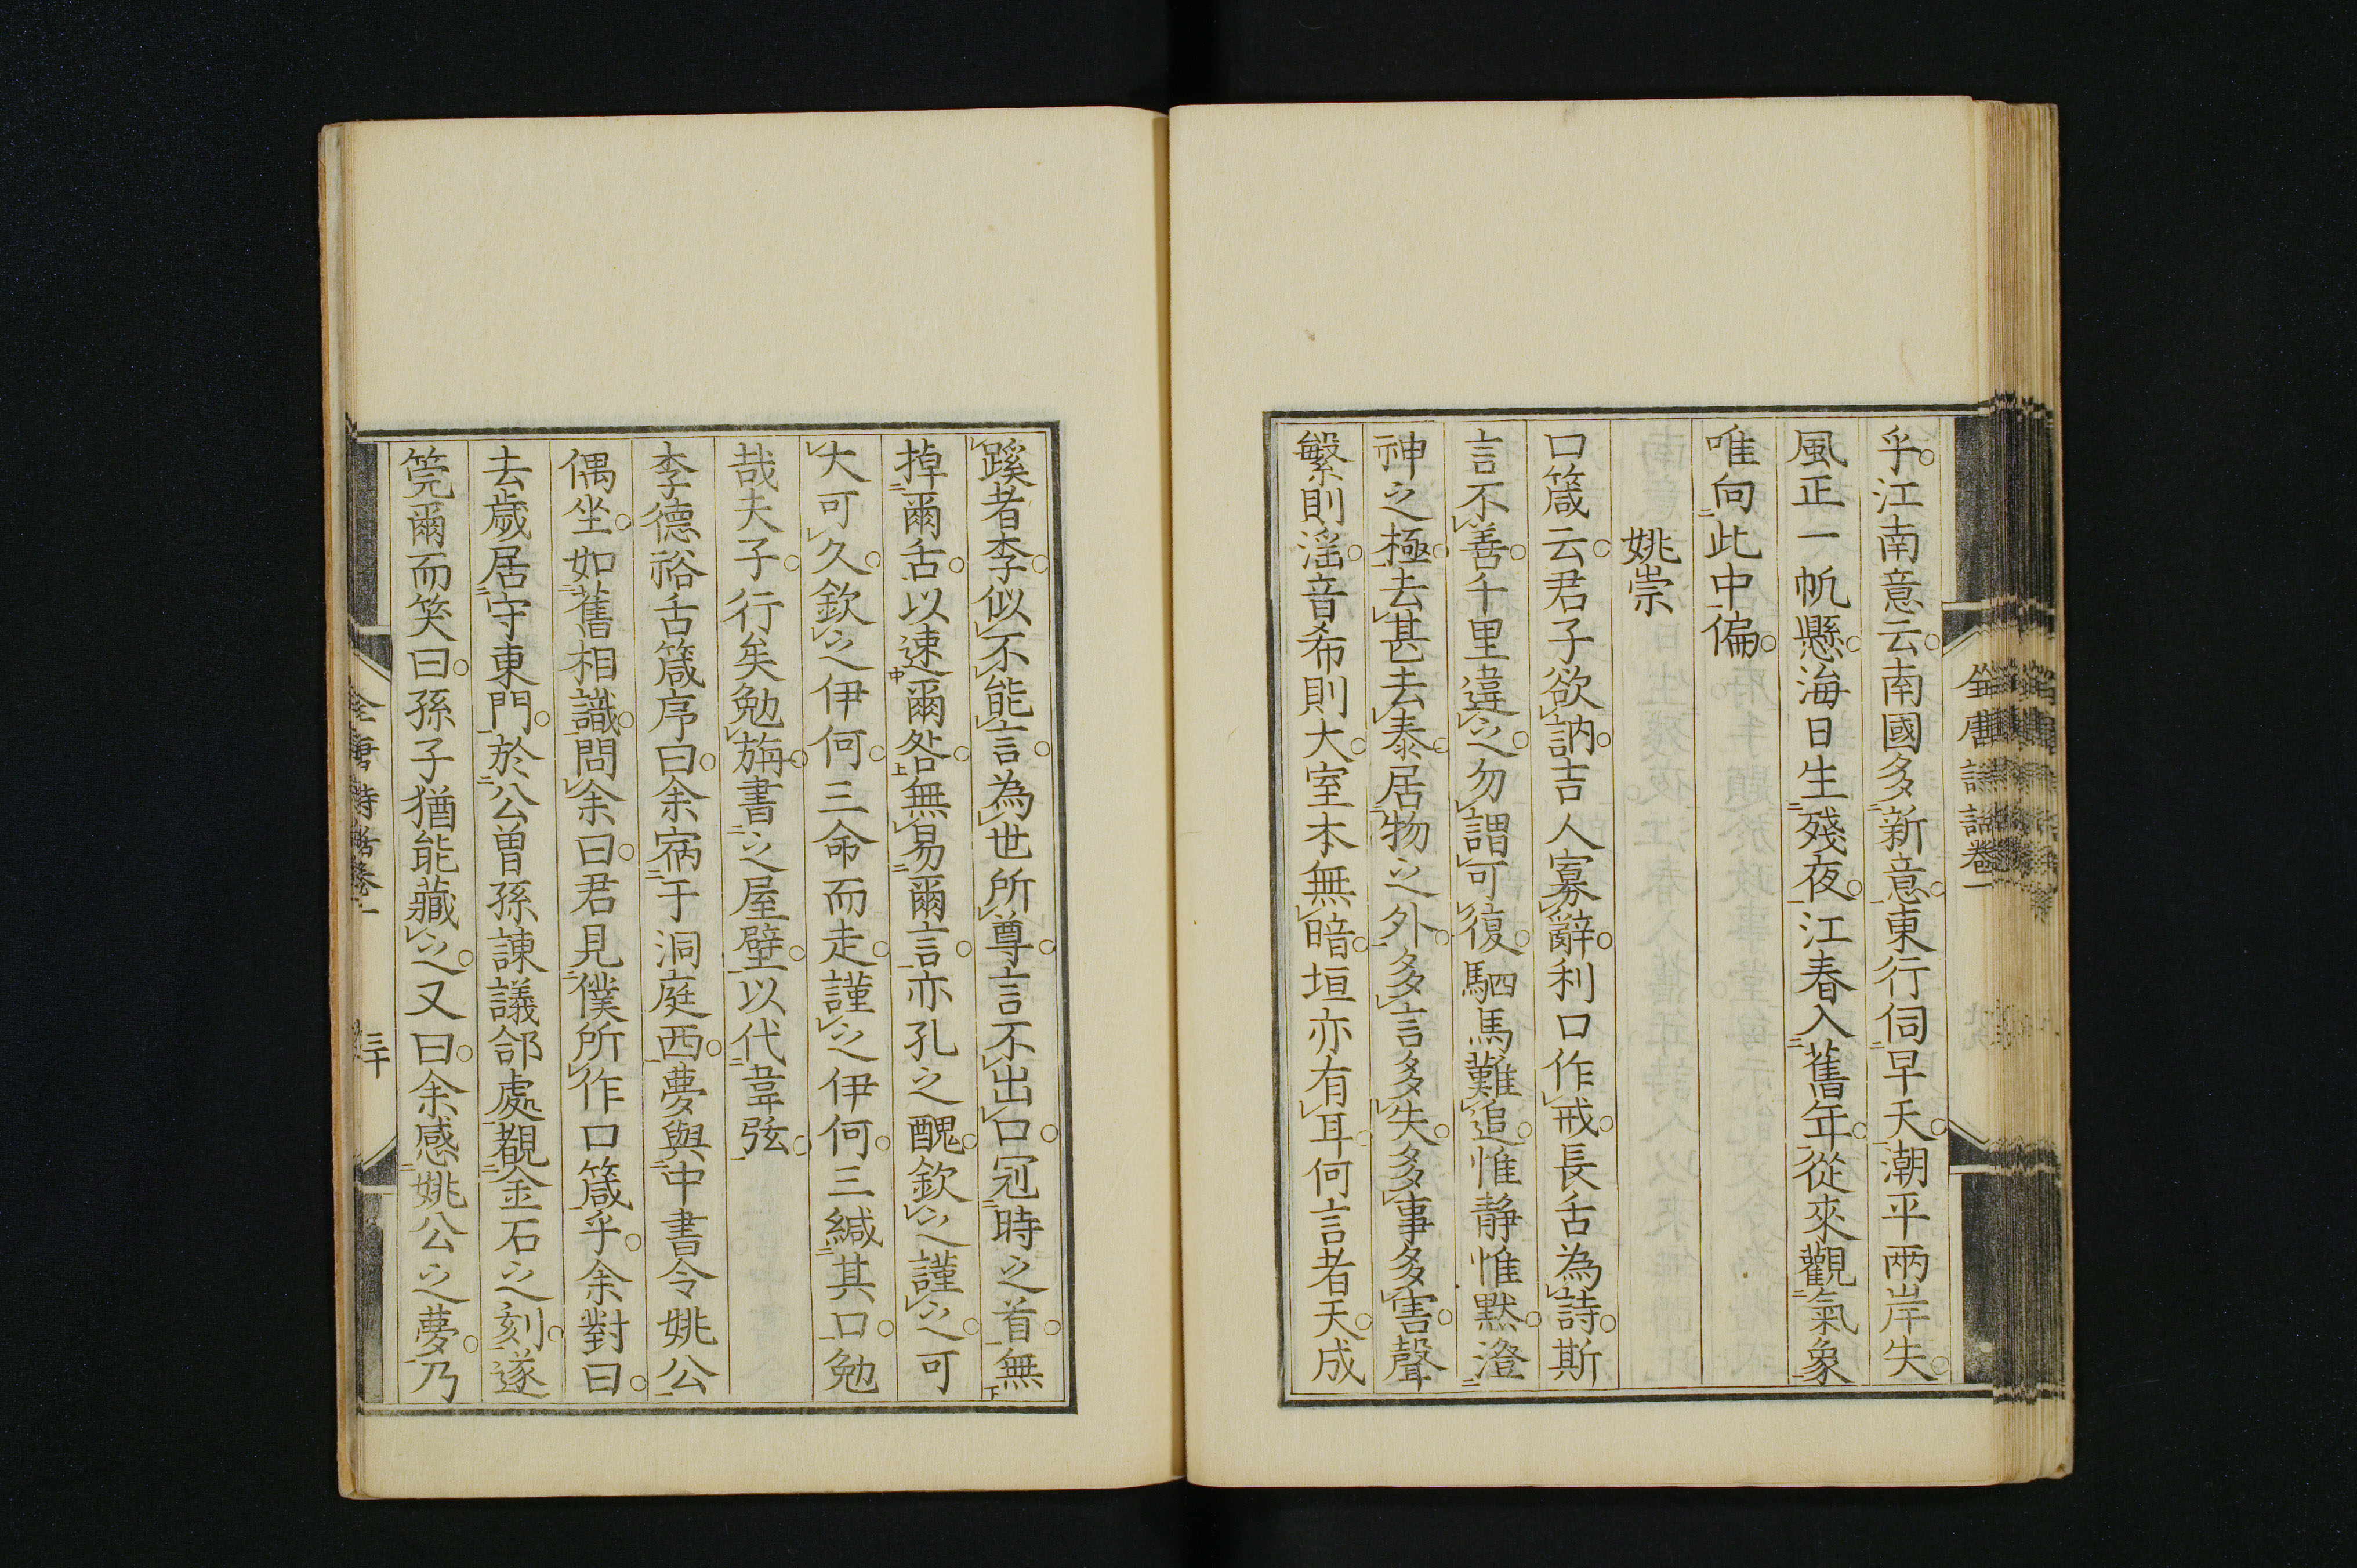 全唐詩話卷一
乎江南意云南國多新意東行伺早天潮平兩岸失
風正一帆懸海日生殘夜江春入舊年從來觀氣象
唯向此中偏
姚崇
口箴云君子欲訥吉人寡辭利口作戒長舌為詩斯
言不善千里違之勿謂可復駟馬難追惟静惟默澄
神之極去甚去泰居物之外多言多失多事多害聲
繁則滛音希則大室本無暗垣亦有耳何言者天成
蹊者李似不能言為世所尊言不出口冠時之首無
掉爾舌以速爾咎無易爾言亦孔之醜欽之謹之可
大可久欽之伊何三命而走謹之伊何三緘其口勉
哉夫子行矣勉旃書之屋壁以代韋弦
李德裕舌箴序曰余宿于洞庭西夢與中書令姚公
偶坐如舊相識問余曰君見僕所作口箴乎余對曰
去歲居守東門於公曾孫諫議郃處覩金石之刻遂
筦爾而笑曰孫子猶能藏之又曰余感姚公之夢乃
全唐詩話卷一
三十